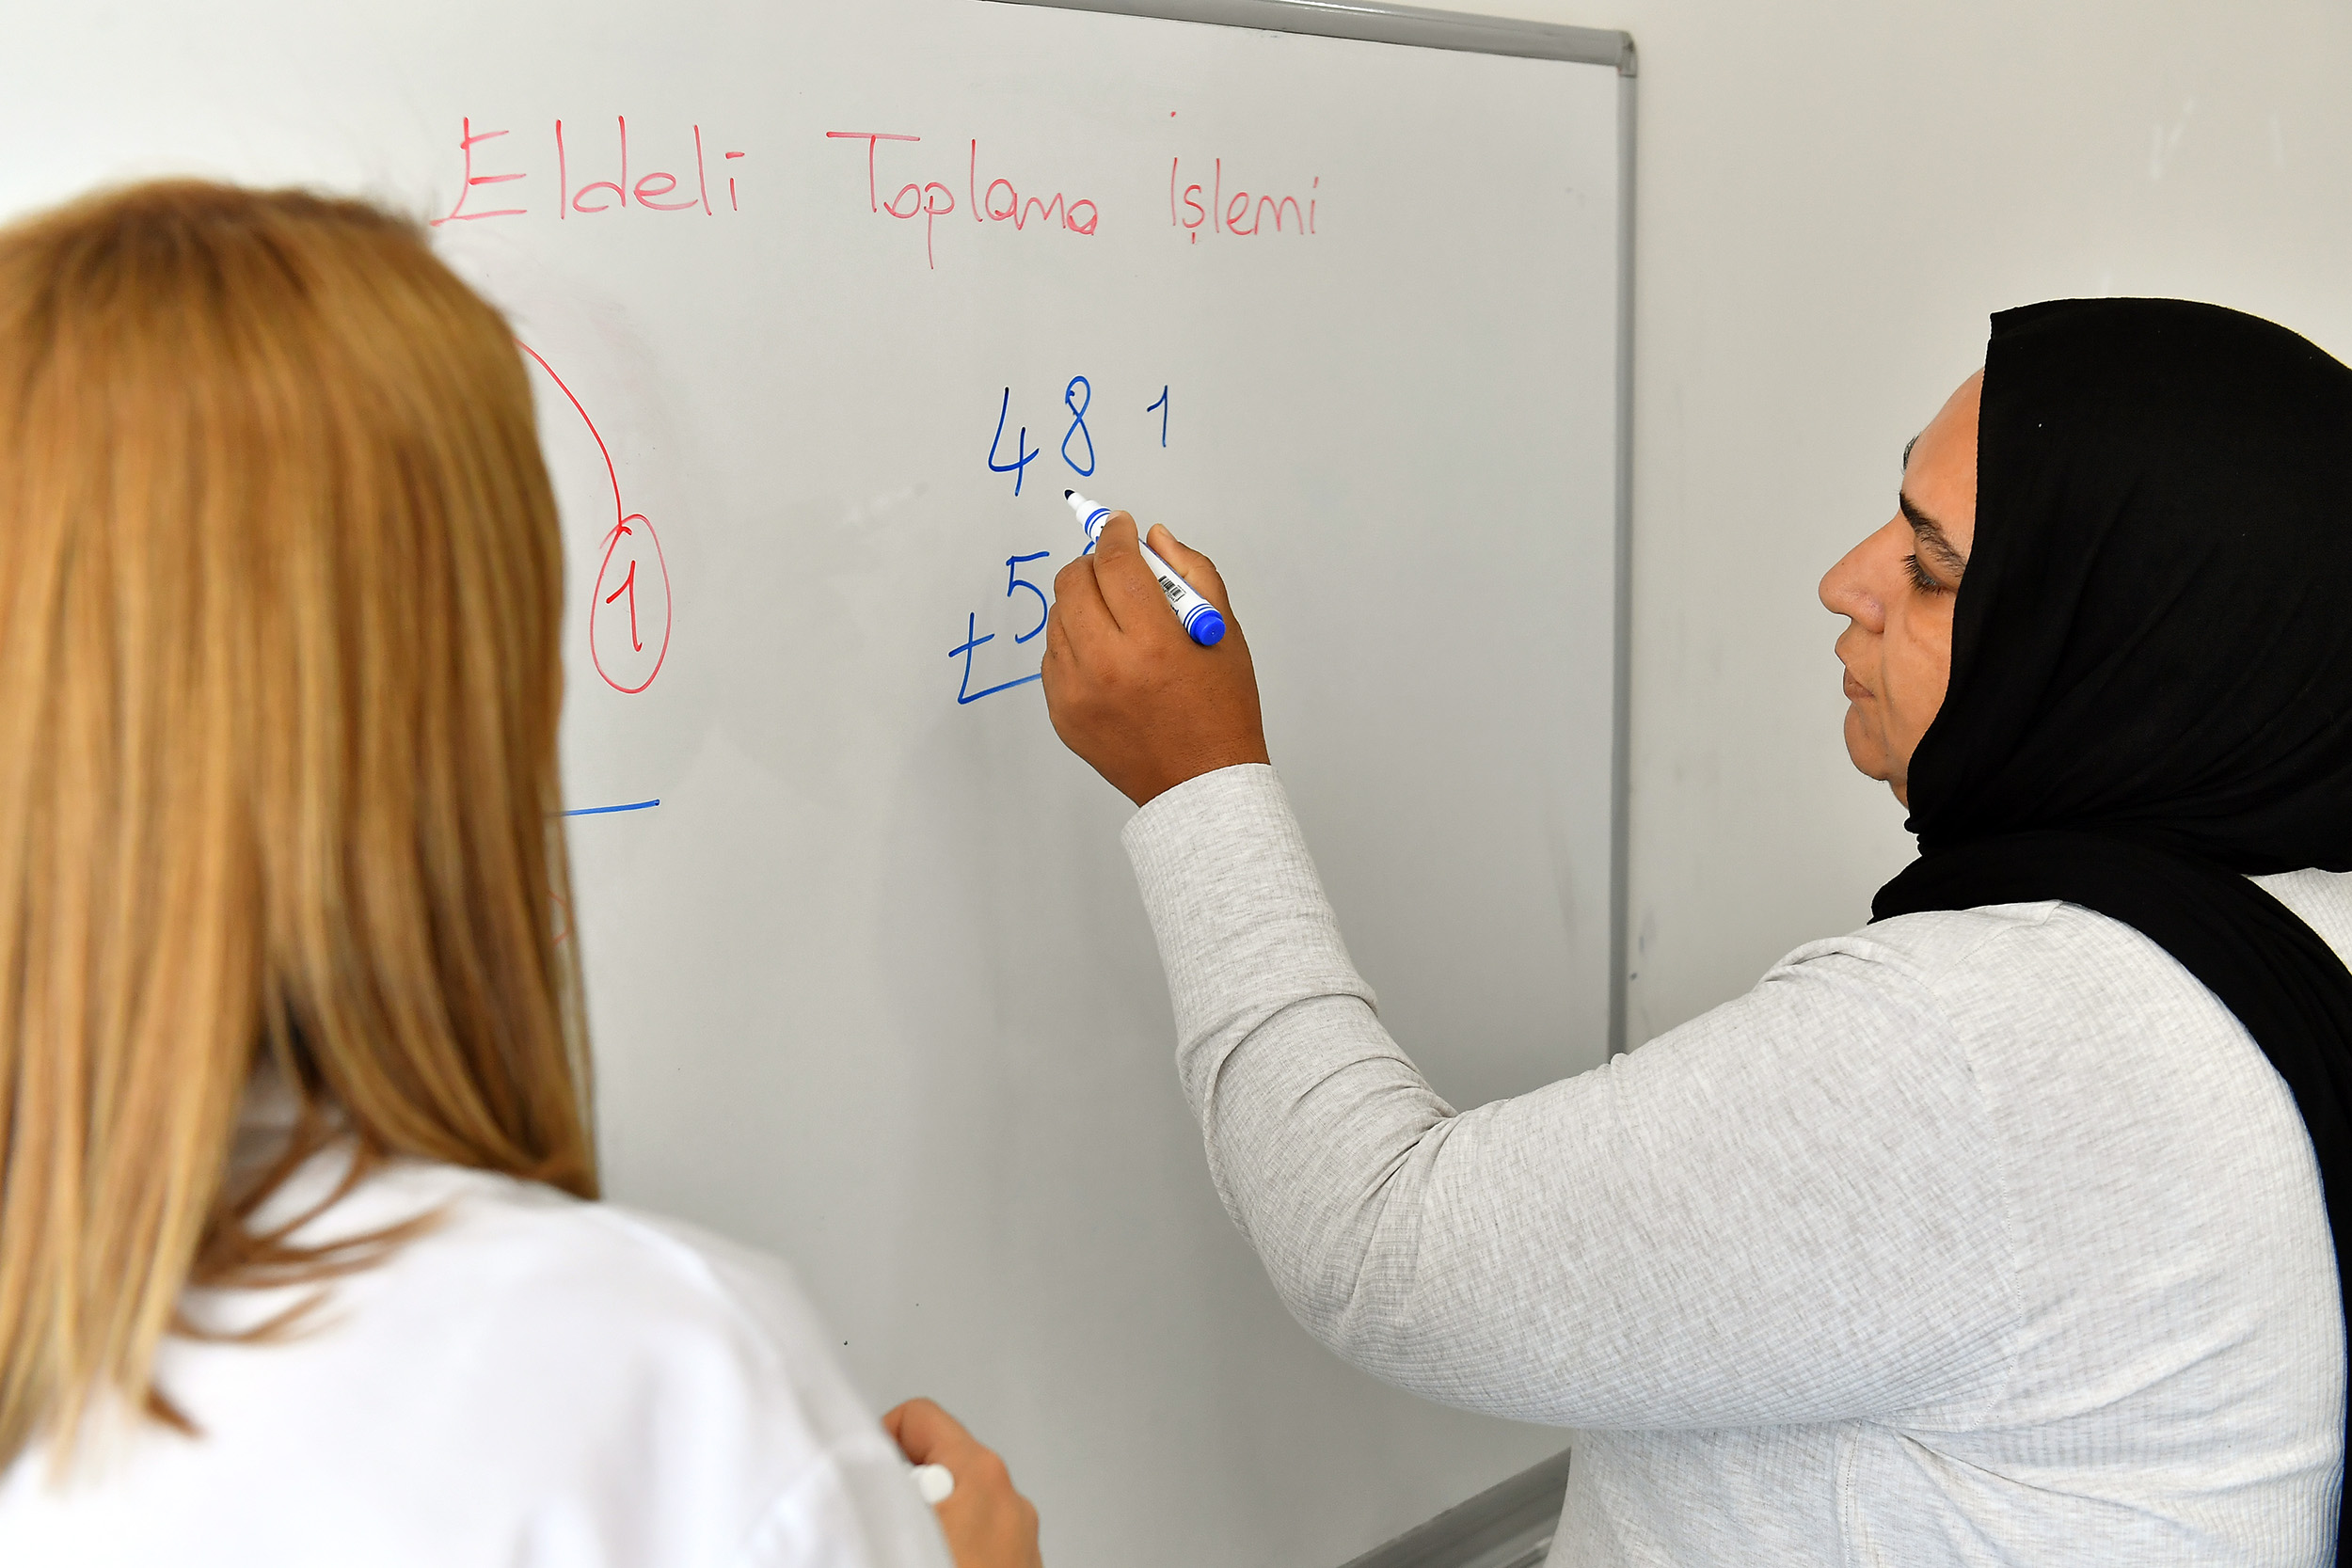 Eldeli Toplama İşlemi
1
481
+5